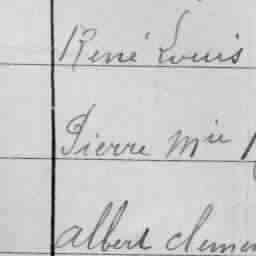 René Louis
Pierre Mie
albert clemen